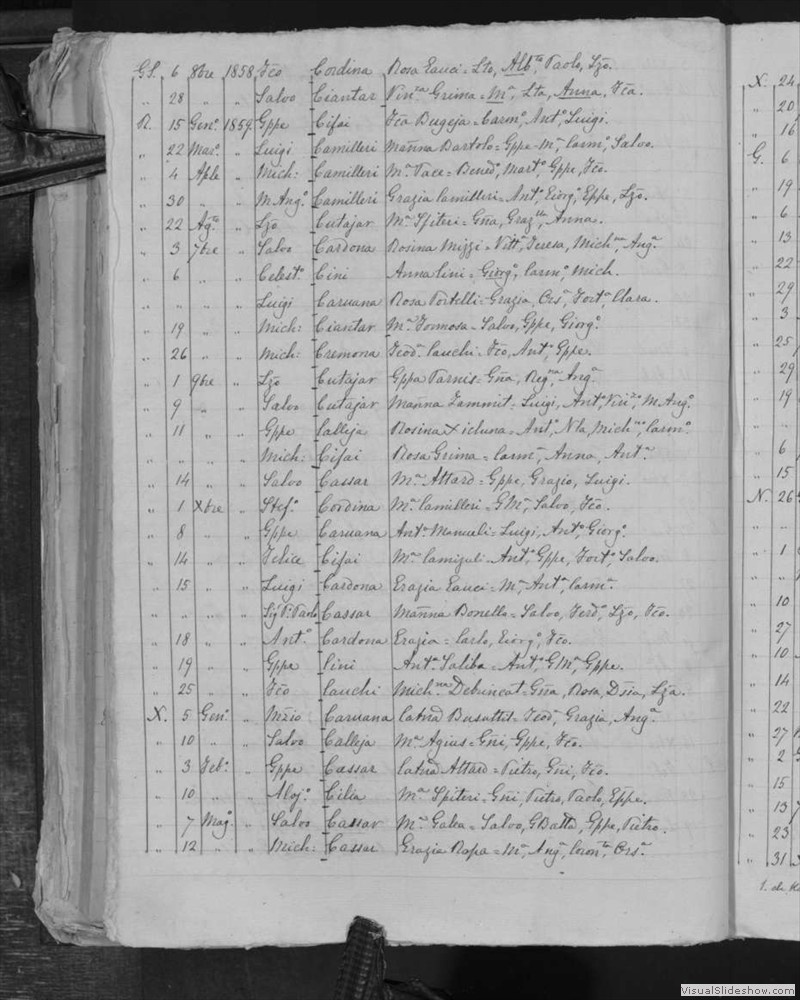 GS. 6 8bre 1858 Fco Cordina Rosa Cauci = Lto, Albta, Paolo, Lzo.
„ 28 „ „ Salvo Ciantar Vinza Grima = Ma, Lta, Anna, Fca.
R. 15 Geno 1859 Gppe Cifai Fca Bugeja = Carmo, Anto, Luigi.
„ 22 Maro „ Luigi Camilleri Manna Bartolo = Gppe-Ma, Carmo, Salvo.
„ 4 Aple „ Mich: Camilleri Ma Pace = Bened, Marto, Gppe, Fco.
„ 30 „ „ M. Ango Camilleri Grazia Camilleri = Anto, Giorgo, Gppe, Lzo.
„ 22 Agto „ Lzo Cutajar Ma Spiteri = Gna, Grazla, Anna.
„ 3 7bre „ Salvo Cardona Rosina Mizzi = Vitt, Teresa, Michna, Anga
„ 6 „ „ Celesto Cini Anna Cini = Giorgo, Carmo, Mich.
„ „ „ „ Luigi Caruana Rosa Portelli = Grazia, Orsa, Forto, Clara.
„ 19 „ „ Mich: Ciantar Ma Formosa = Salvo, Gppe, Giorgo
„ 26 „ „ Mich: Cremona Teoda Cauchi = Fco, Anto, Gppe.
„ 1 9bre „ Lzo Cutajar Gppa Farnis = Gna, Regna, Anga
„ 9 „ „ Salvo Cutajar Manna Zammit = Luigi, Anto, Vinzo, M. Ango
„ 11 „ „ Gppe Calleja Rosina Xicluna = Anto, Nla, Michna, Carmo
„ „ „ „ Mich: Cifai Rosa Grima = Carma, Anna, Anta
„ 14 „ „ Salvo Cassar Ma Attard = Gppe, Grazio, Luigi.
„ 1 Xbre „ Stefo Cordina Ma Camilleri = GMa, Salvo, Fco.
„ 8 „ „ Gppe Caruana Anta Manueli = Luigi, Anto, Giorgo
„ 14 „ „ Felice Cifai Ma = Anto, Gppe, Forto, Salvo.
„ 15 „ „ Luigi Cardona Grazia Cauci = Ma, Anta, Carma
„ „ „ „ Sig P. Paolo Cassar Manna Bonello = Salvo, Ferdo, Lzo, Fco.
„ 18 „ „ Anto Cardona Grazia = Carlo, Giorgo, Fco.
„ 19 „ „ Gppe Cini Anta Saliba = Anto, GMa, Gppe.
„ 25 „ „ Fco Cauchi Michna Debrincat = Gna, Rosa, Dsia, Lza.
N. 5 Geno „ Mzio Caruana Catna Busuttil = Teod, Grazia, Anga
„ 10 „ „ Salvo Calleja Ma Agius = Gni, Gppe, Fco.
„ 3 Febo „ Gppe Cassar Catna Attard = Pietro, Gni, Fco.
„ 10 „ „ Alojo Cilia Ma Spiteri = Gni, Pietro, Paolo, Gppe.
„ 7 Mago „ Salvo Cassar Ma Galea = Salvo, GBatta, Gppe, Pietro.
„ 12 „ „ Mich: Cassar Grazia Rapa = Ma, Anga, Orsa
X. 24
„ 20
„ 16
G. 6
„ 19
„ 6
„ 13
„ 22
„ 29
„ 3
„ 25
„ 29
„ 19
„ „
„ 6
„ 15
N. 26
„ „
„ 1
„ „
„ 10
„ 27
„ 10
„ 14
„ 22
„ 27
„ 2
„ 15
„ 13
„ 23
„ 31
VisualSlideshow.com